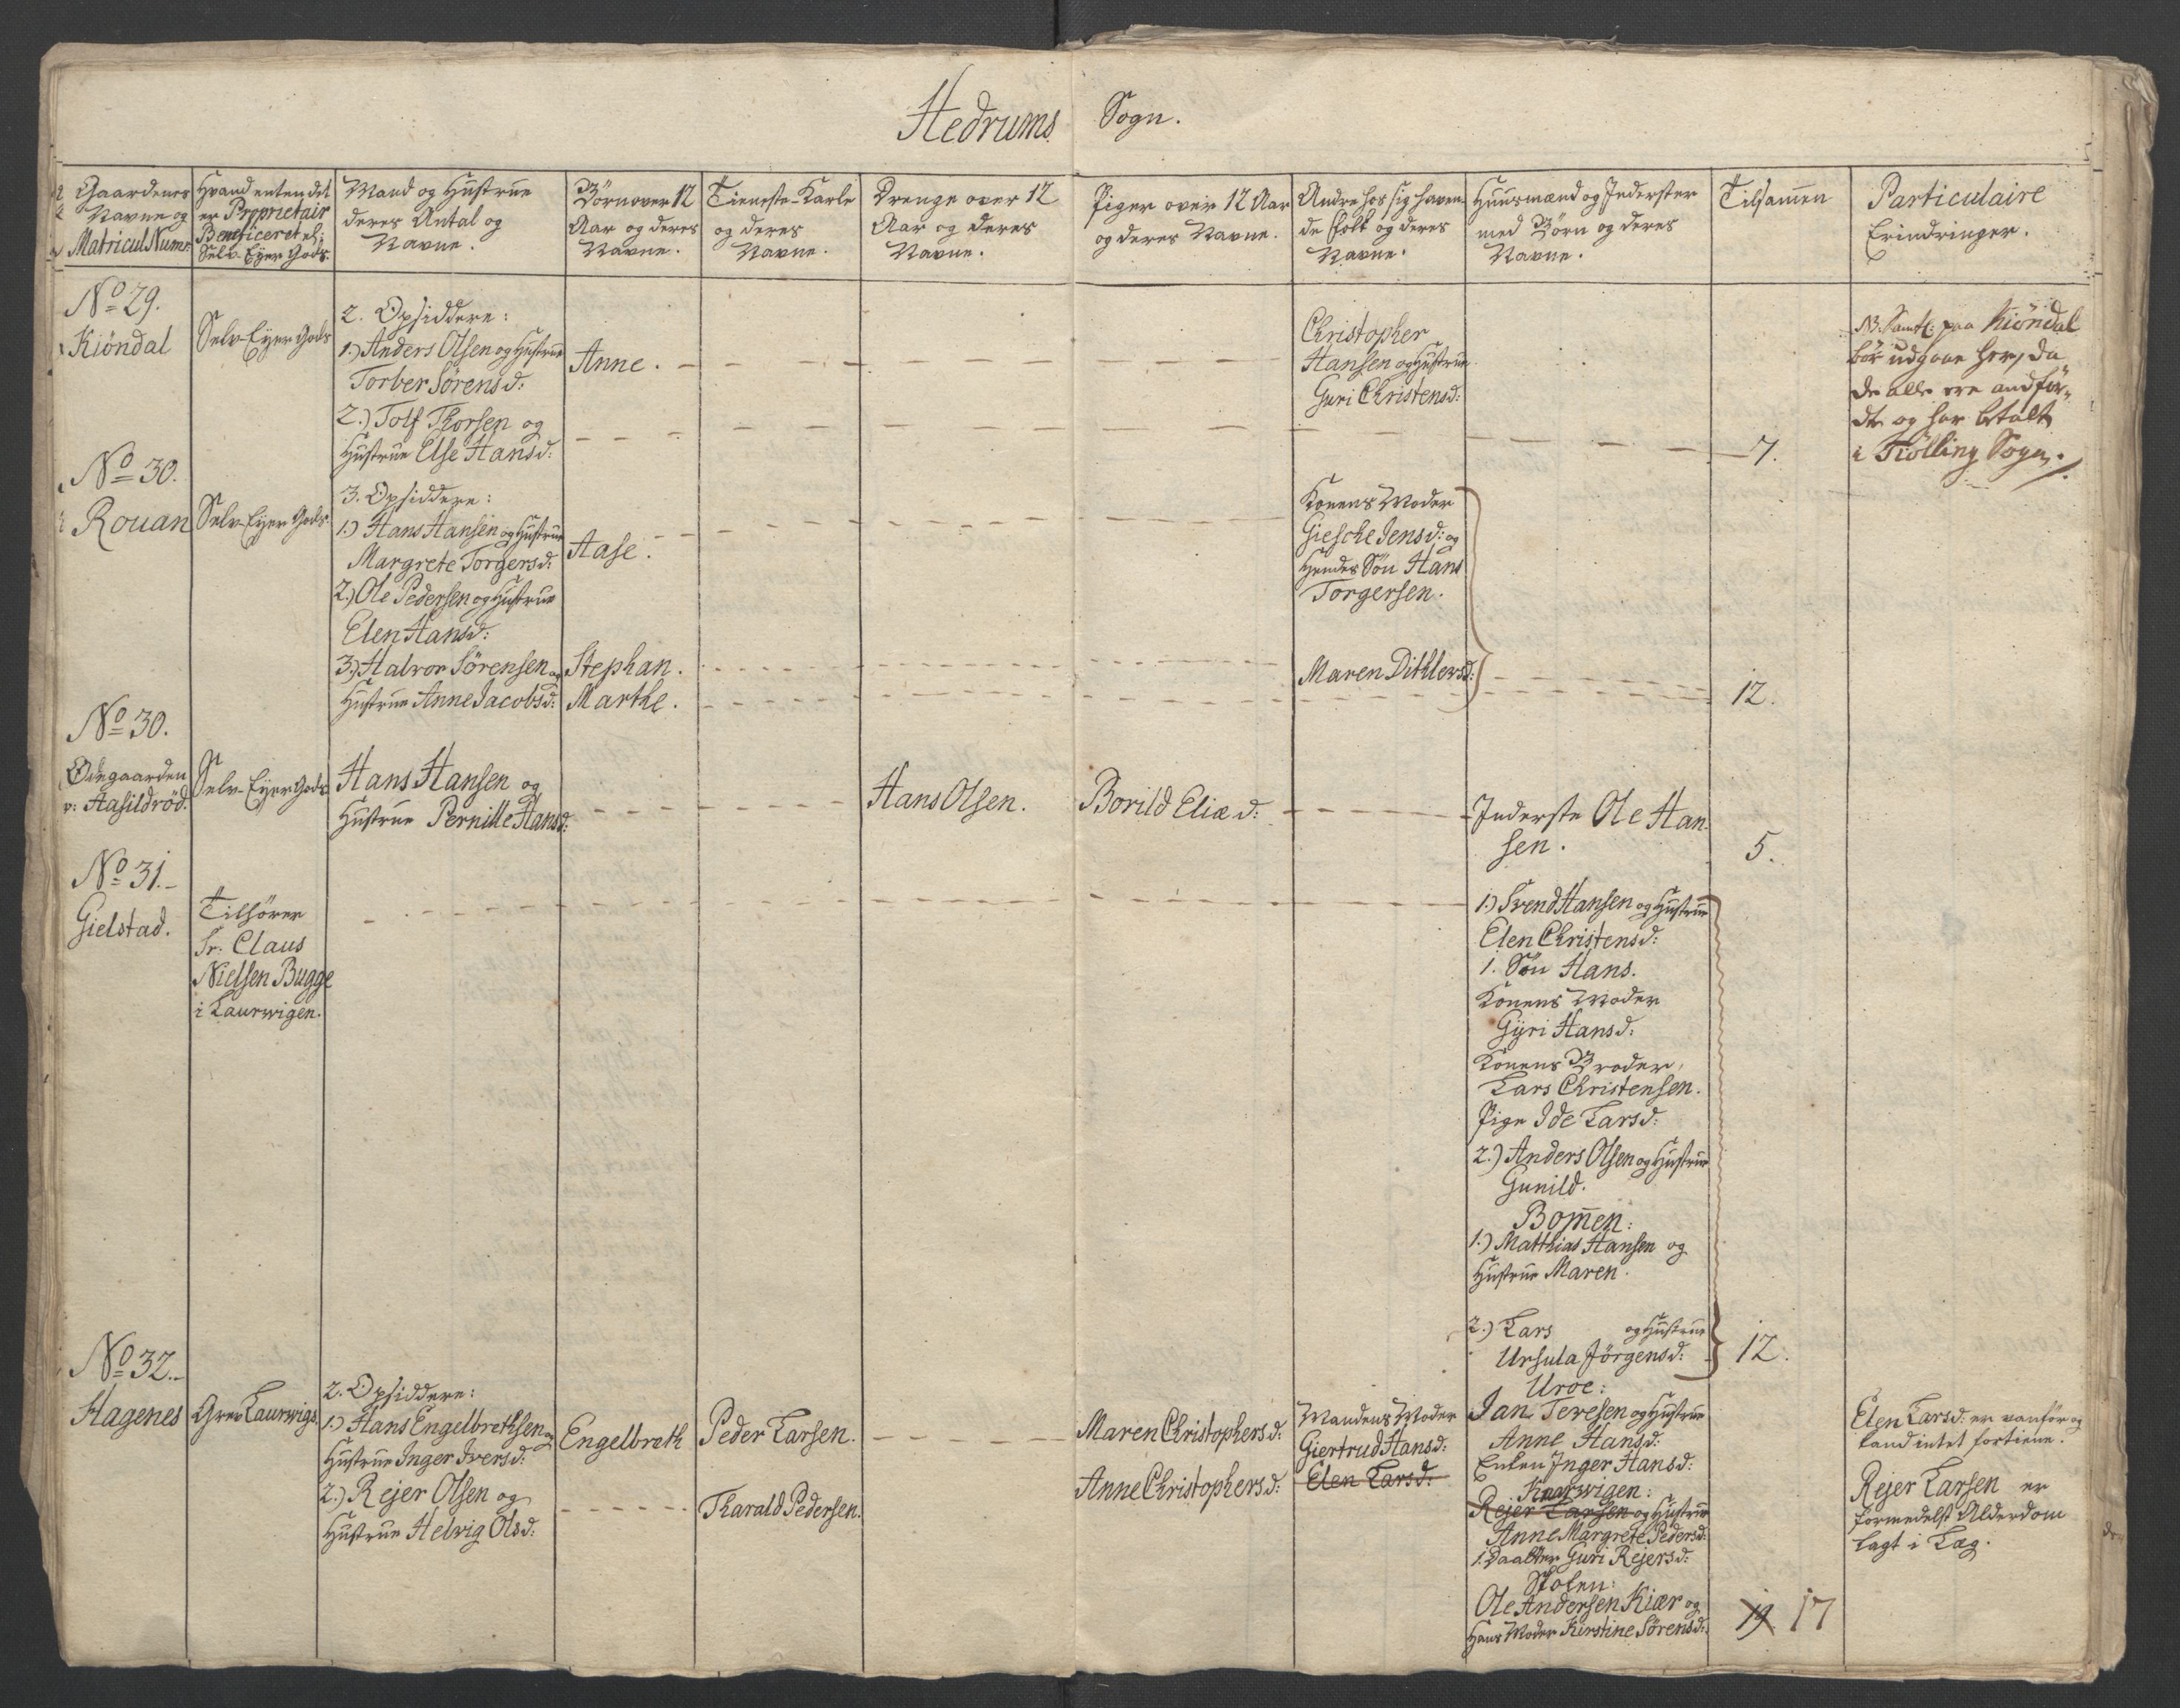 Hedrums Sogn.
Gaardenes
Navne og
Matricul Num:
Hvand enten det
er Proprietair
Beneficeret el:
Selv-Eyer Gods.
Mand og Hustrue
deres Antal og
Navne.
Börn over 12
Aar og deres
Navne.
Tieneste-Karle
og deres
Navne.
Drenge over 12
Aar og deres
Navne.
Piger over 12 Aar
og deres Navne.
Andre hos sig haven-
de Folk og deres
Navne.
Huusmænd og Inderster
med Börn og deres
Navne.
Tilsamen
Particulaire
Erindringer.
No 29.
Kiöndal
Selv-Eyer Gods
2. Opsiddere:
1.) Anders Olsen og Hustrue
Torber Sörensd:
2.) Tolf Thorsen og
Hustrue Else Hansd:
Anne.
Christopher
Hansen og Hustrue
Guri Christensd:
7.
NB. Samtl: paa Kiöndal
bör udgaae her, da
de alle ere anför-
dt og har betalt
i Tiölling Sogn.
No 30.
Rouan
Selv-Eyer Gods
3. Opsiddere:
1.) Hans Hansen og Hustrue
Margrete Torgersd:
2.) Ole Pedersen og Hustrue
Elen Hansd:
3.) Halvor Sörensen og
Hustrue Anne Jacobsd:
Aase.
Stephan.
Marthe.
Konens Moder
Giesche Jensd: og
Hendes Sön Hans
Torgersen.
Maren Dithlevsd:
12.
No 30.
Ödegaarden
v: Aasildröd.
Selv-Eyer Gods
Hans Hansen og
Hustrue Pernille Hansd:
Hans Olsen.
Borild Eliæ d:
Inderste Ole Han-
sen.
5.
No 31.
Gielstad.
Tilhörer
Sr. Claus
Nielsen Bugge
i Laurwigen.
1.) Svend Hansen og Hustrue
Elen Christensd:
1. Sön Hans.
Konens Moder
Gÿri Hansd:
Konens Broder,
Lars Christensen.
Pige Ide Larsd:
2.) Anders Olsen og Hustrue
Gunild.
Bomen:
1.) Matthias Hansen og
Hustrue Maren.
2.) Lars og Hustrue
Ursula Jörgensd:
12.
No 32.
Hagenes
Grev Laurwigs.
2. Opsiddere:
1.) Hans Engelbrethsen og
Hustrue Inger Iversd:
2.) Rejer Olsen og
Hustrue Helvig Olsd:
Engelbreth
Peder Larsen.
Tharald Pedersen.
Maren Christophersd:
Anne Christophersd:
Mandens Moder
Giertrud Hansd:
Elen Larsd:
Uroe:
Jan Teresen og Hustrue
Anne Hansd:
Enken Inger Hansd:
Knarwigen:
Rejer Larsen og Hustrue
Anne Margrete Pedersd:
1. Daatter Guri Rejersd:
Stolen:
Ole Andersen Kiær og
Hans Moder Kirstine Sörensd:
19 17
Elen Larsd: er vanför og
kand intet fortiene.
Rejer Larsen er
formedelst Alderdom
lagt i Læg.